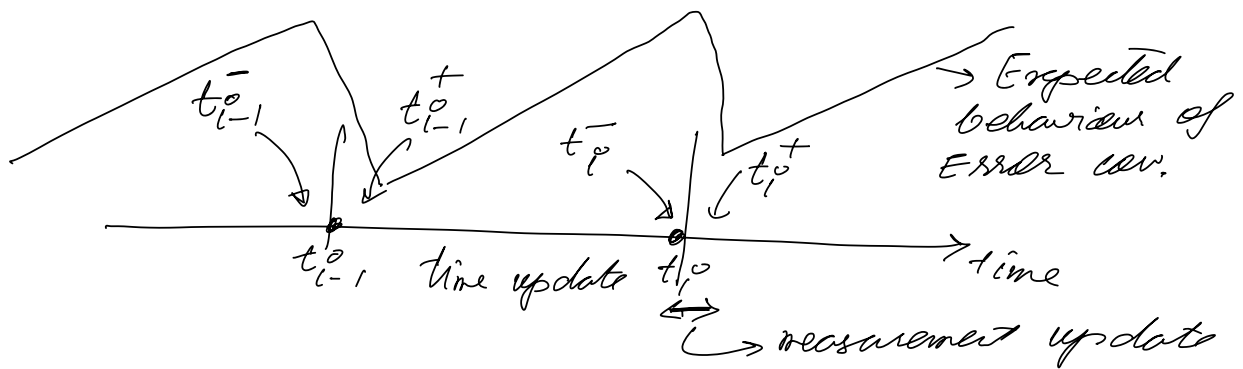 t⁻ᵢ₋₁
t⁺ᵢ₋₁
t⁻ᵢ
t⁺ᵢ
→ Expected
behaviour of
Error cov.
tᵢ₋₁
time update
tᵢ
time
measurement update